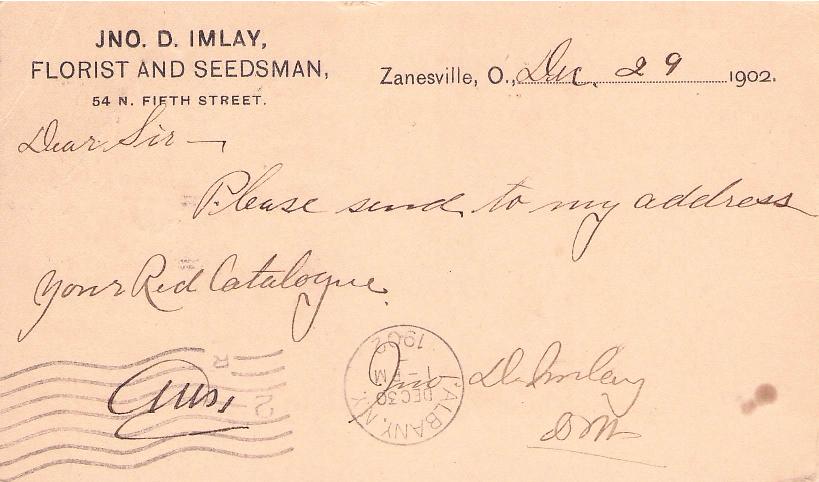 JNO. D. IMLAY,
FLORIST AND SEEDSMAN,
54 N. FIFTH STREET.
Zanesville, O., Dec. 29 1902.
Dear Sir —
Please send to my address
your Red Catalogue.
Jno D. Imlay
Ans.
ALBANY, N.Y.
DEC 30
1 - PM
1902
R
12